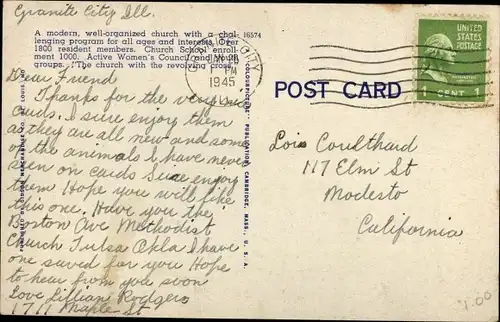 Granite City Ill.
A modern, well-organized church with a chal-
lenging program for all ages and interests. Over
1800 resident members. Church School enroll-
ment 1000. Active Women's Council and Youth
groups. "The church with the revolving cross."
16574
Dear Friend
Thanks for the very nice
cards. I sure enjoy them
as they are all new and some
of the animals I have never
seen on cards Sure enjoy
them Hope you will like
this one. Have you the
Boston Ave Methodist
Church Tulsa Okla I have
one saved for you Hope
to hear from you soon
Love Lillian Rodgers
1711 Maple St
CITY
PM
1945
ILL.
"COLORPICTURE" PUBLICATION, CAMBRIDGE, MASS., U. S. A.
POST CARD
UNITED
STATES
POSTAGE
1 CENT 1
Lois Coulthard
117 Elm St
Modesto
California
1.00